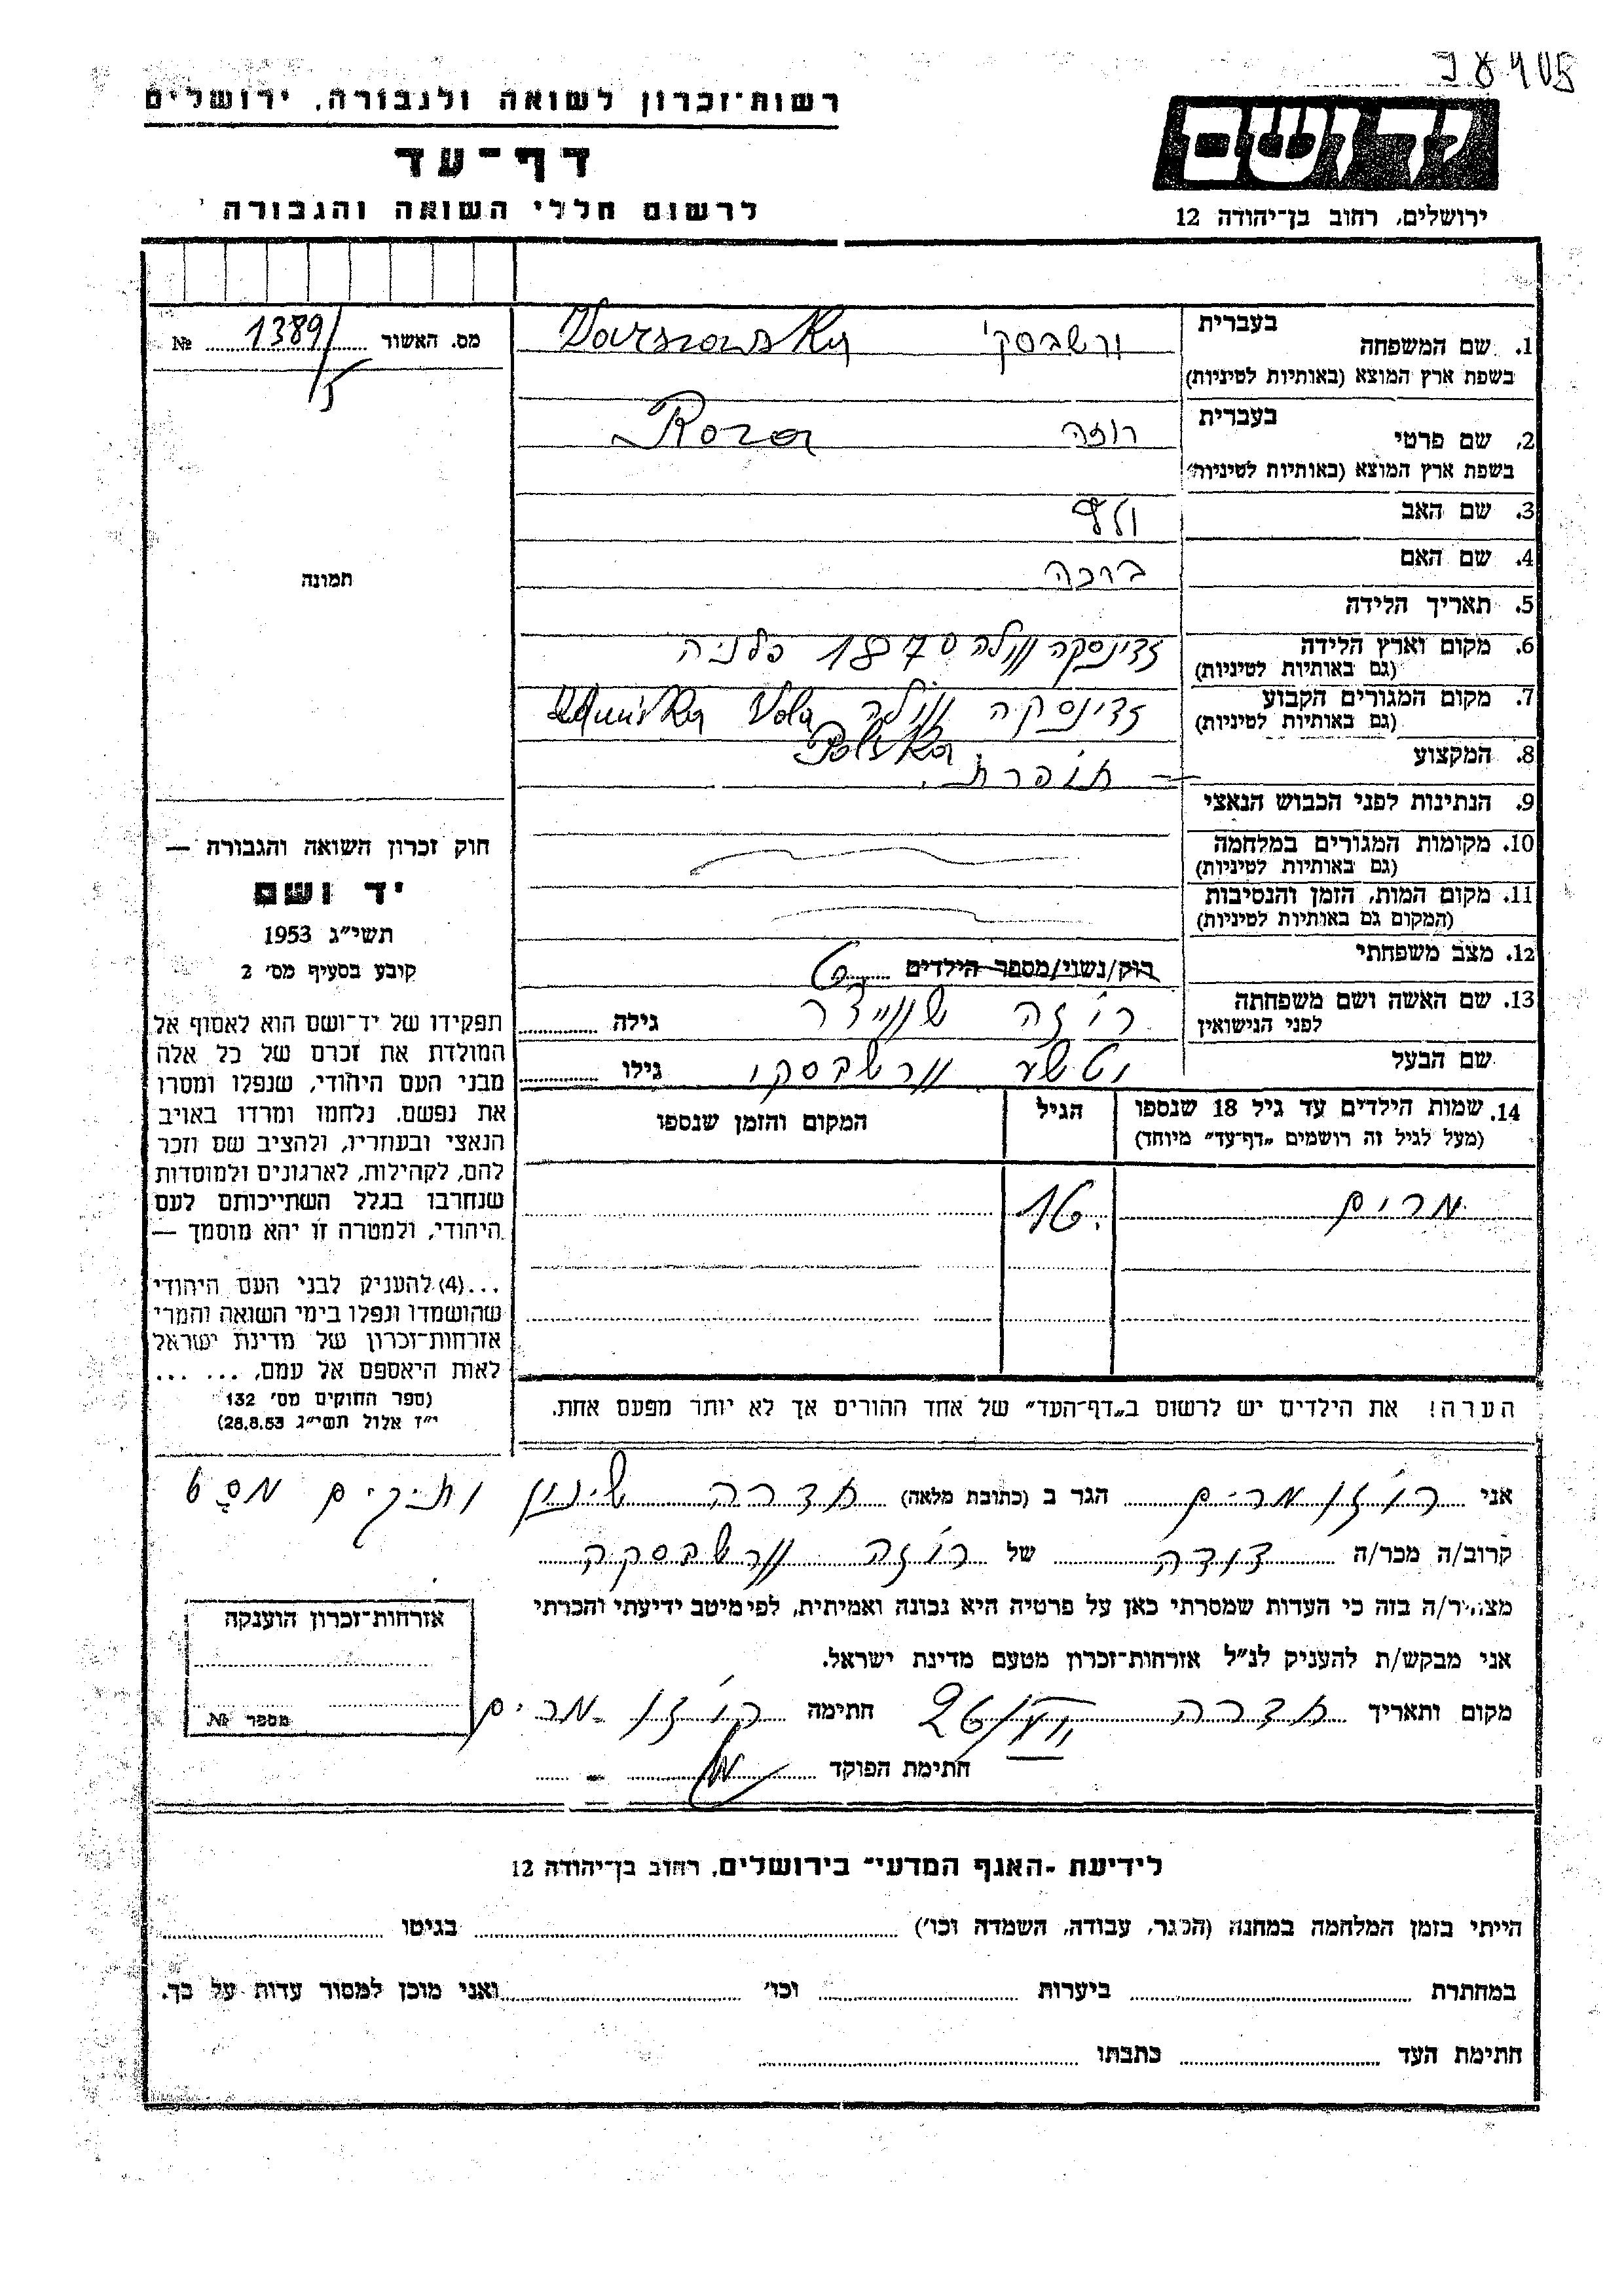 רשות־זכרון לשואה ולגבורה, ירושלים
דף־עד
לרשום חללי השואה והגבורה
יד ושם
ירושלים, רחוב בן־יהודה 12
מס. האשור 1389/ №
תמונה
חוק זכרון השואה והגבורה —
יד ושם
תשי״ג 1953
קובע בסעיף מס׳ 2
תפקידו של יד־ושם הוא לאסוף אל
המולדת את זכרם של כל אלה
מבני העם היהודי, שנפלו ומסרו
את נפשם, נלחמו ומרדו באויב
הנאצי ובעוזריו, ולהציב שם וזכר
להם, לקהילות, לארגונים ולמוסדות
שנחרבו בגלל השתייכותם לעם
היהודי, ולמטרה זו יהא מוסמך —
...(4) להעניק לבני העם היהודי
שהושמדו ונפלו בימי השואה והמרי
אזרחות־זכרון של מדינת ישראל
לאות היאספם אל עמם, ... ...
(ספר החוקים מס׳ 132
י״ז אלול תשי״ג 28.8.53)
בעברית
1. שם המשפחה ורשבסקי Varszawska
בשפת ארץ המוצא (באותיות לטיניות)
בעברית
2. שם פרטי רוזה Roza
בשפת ארץ המוצא (באותיות לטיניות)
3. שם האב וולף
4. שם האם ברכה
5. תאריך הלידה
6. מקום וארץ הלידה זדינסקה וולה 1870 פלניה
(גם באותיות לטיניות)
7. מקום המגורים הקבוע זדינסקה וולה Vola
(גם באותיות לטיניות) Polska
8. המקצוע תופרת
9. הנתינות לפני הכבוש הנאצי
10. מקומות המגורים במלחמה
(גם באותיות לטיניות)
11. מקום המות, הזמן והנסיבות
(המקום גם באותיות לטיניות)
12. מצב משפחתי רוק/נשוי/מספר הילדים 6
13. שם האשה ושם משפחתה רוזה שניידר גילה
לפני הנישואין
שם הבעל ורשבסקי גילו
14. שמות הילדים עד גיל 18 שנספו הגיל המקום והזמן שנספו
(מעל לגיל זה רושמים „דף־עד״ מיוחד)
מרים 16
הערה! את הילדים יש לרשום ב„דף־העד״ של אחד ההורים אך לא יותר מפעם אחת.
אני רוזן מרים הגר ב (כתובת מלאה) חדרה שיכון ותיקים
קרוב/ה מכר/ה דודה של רוזה ורשבסקה
מצהיר/ה בזה כי העדות שמסרתי כאן על פרטיה היא נכונה ואמיתית, לפי מיטב ידיעתי והכרתי
אני מבקש/ת להעניק לנ״ל אזרחות־זכרון מטעם מדינת ישראל.
מקום ותאריך חדרה חתימה רוזן מרים
חתימת הפוקד
אזרחות־זכרון הוענקה
מספר №
לידיעת ״האגף המדעי״ בירושלים, רחוב בן־יהודה 12
הייתי בזמן המלחמה במחנה (הסגר, עבודה, השמדה וכו׳) בגיטו
במחתרת ביערות וכו׳ ואני מוכן למסור עדות על כך.
חתימת העד כתבתו